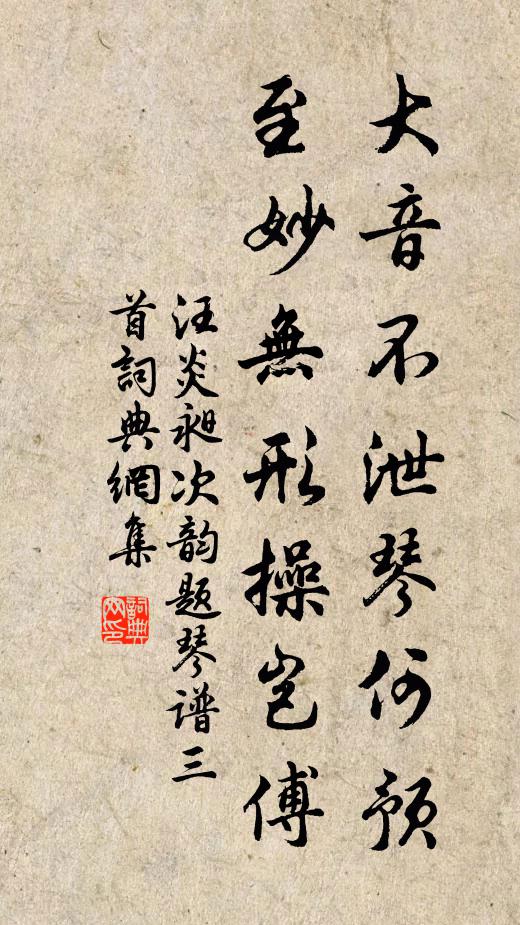 大音不泄琴何预
至妙無形操岂傅
汪炎昶次韵题琴谱三
首詞典網集
詞典
网印